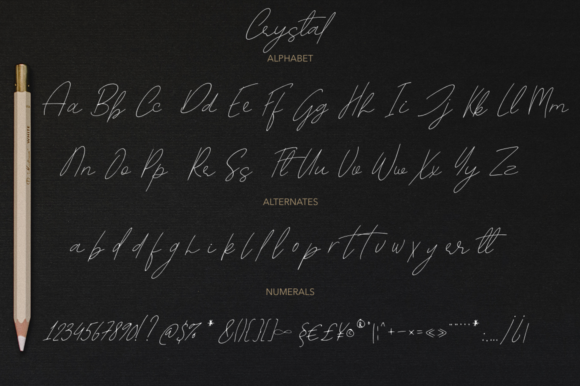 Crystal
ALPHABET
Aa Bb Cc Dd Ee Ff Gg Hh Ii Jj Kk Ll Mm
Nn Oo Pp Rr Ss Tt Uu Vv Ww Xx Yy Zz
ALTERNATES
a b d d f g h i k l l l o p r t t u v w x y er tt
NUMERALS
1234567890 ! ? @ $ % * & ( ) [ ] { } § € £ ¥ © ® + − × = « »